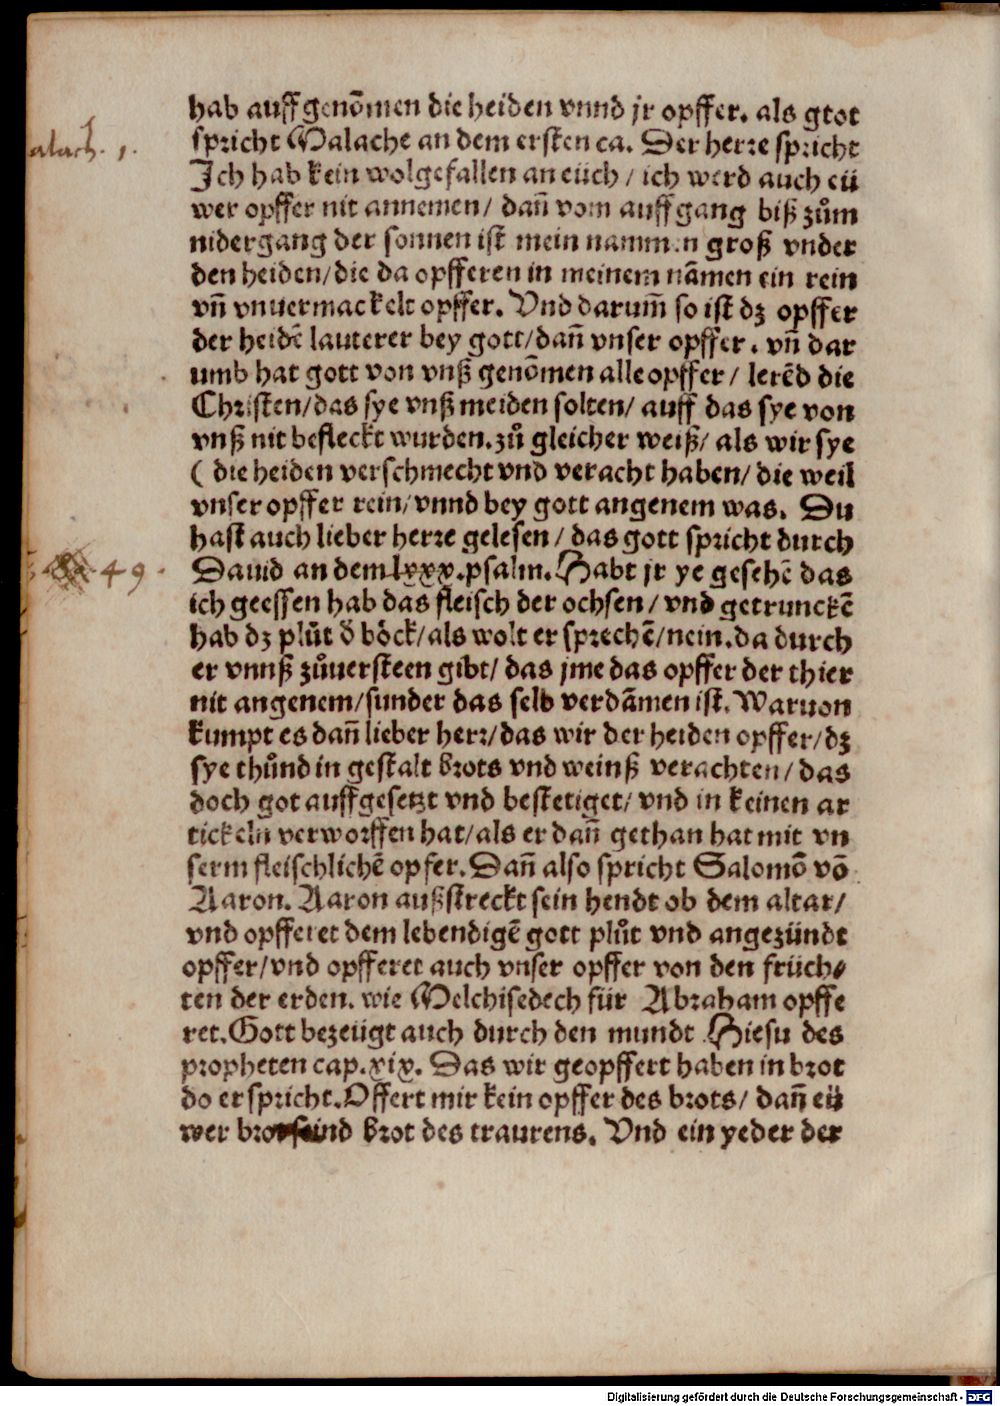 hab auffgenõmen die heiden vnnd jr opffer. als gtot
spricht Malache an dem ersten ca. Der herre spricht
Ich hab kein wolgefallen an eüch / ich werd auch eü
wer opffer nit annemen / dañ vom auffgang biß zům
nidergang der sonnen ist mein namm.n groß vnder
den heiden/die da opfferen in meinem nãmen ein rein
vñ vnuermackelt opffer. Vnd darum̃ so ist dz opffer
der heidẽ lauterer bey gott/dañ vnser opffer. vñ dar
umb hat gott von vnß genõmen alle opffer / lerẽd die
Christen/das sye vnß meiden solten/ auff das sye von
vnß nit befleckt wurden.zů gleicher weiß/ als wir sye
( die heiden verschmecht vnd veracht haben/ die weil
vnser opffer rein/vnnd bey gott angenem was. Du
hast auch lieber herre gelesen / das gott spricht durch
Dauid an dem lxxx.psalm. Habt jr ye gesehẽ das
ich geessen hab das fleisch der ochsen / vnd getrunckẽ
hab dz plůt d̓ böck/als wolt er sprechẽ/nein.da durch
er vnnß zůuersteen gibt/ das jme das opffer der thier
nit angenem/sunder das selb verdãmen ist. Waruon
kumpt es dañ lieber herr/das wir der heiden opffer/dz
sye thůnd in gestalt brots vnd weinß verachten/ das
doch got auffgesetzt vnd bestetiget/ vnd in keinen ar
tickeln verworffen hat/als er dañ gethan hat mit vn
serm fleischlichẽ opfer. Dañ also spricht Salomõ võ
Aaron. Aaron außstreckt sein hendt ob dem altar/
vnd opfferet dem lebendigẽ gott plůt vnd angezündt
opffer/vnd opfferet auch vnser opffer von den früch⸗
ten der erden. wie Melchisedech für Abraham opffe
ret. Gott bezeügt auch durch den mundt Hiesu des
propheten cap.xix. Das wir geopffert haben in brot
do er spricht. Offert mir kein opffer des brots/ dañ eü
wer brot seind brot des traurens. Vnd ein yeder der
alach. 1.
49.
Digitalisierung gefördert durch die Deutsche Forschungsgemeinschaft - DFG